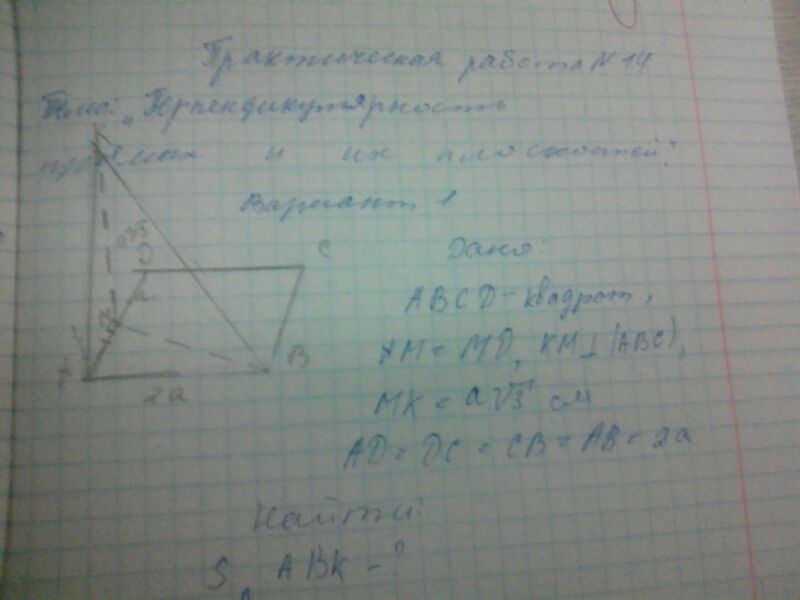 Практическая работа N 14
Тема: „Перпендикулярность
прямых и их плоскостей"
Вариант 1
Дано:
D
C
ABCD - квадрат,
AM = MD, KM ⊥ (ABC),
B
2a
MK = a√3 см
AD = DC = CB = AB = 2a
Найти:
S ABK - ?